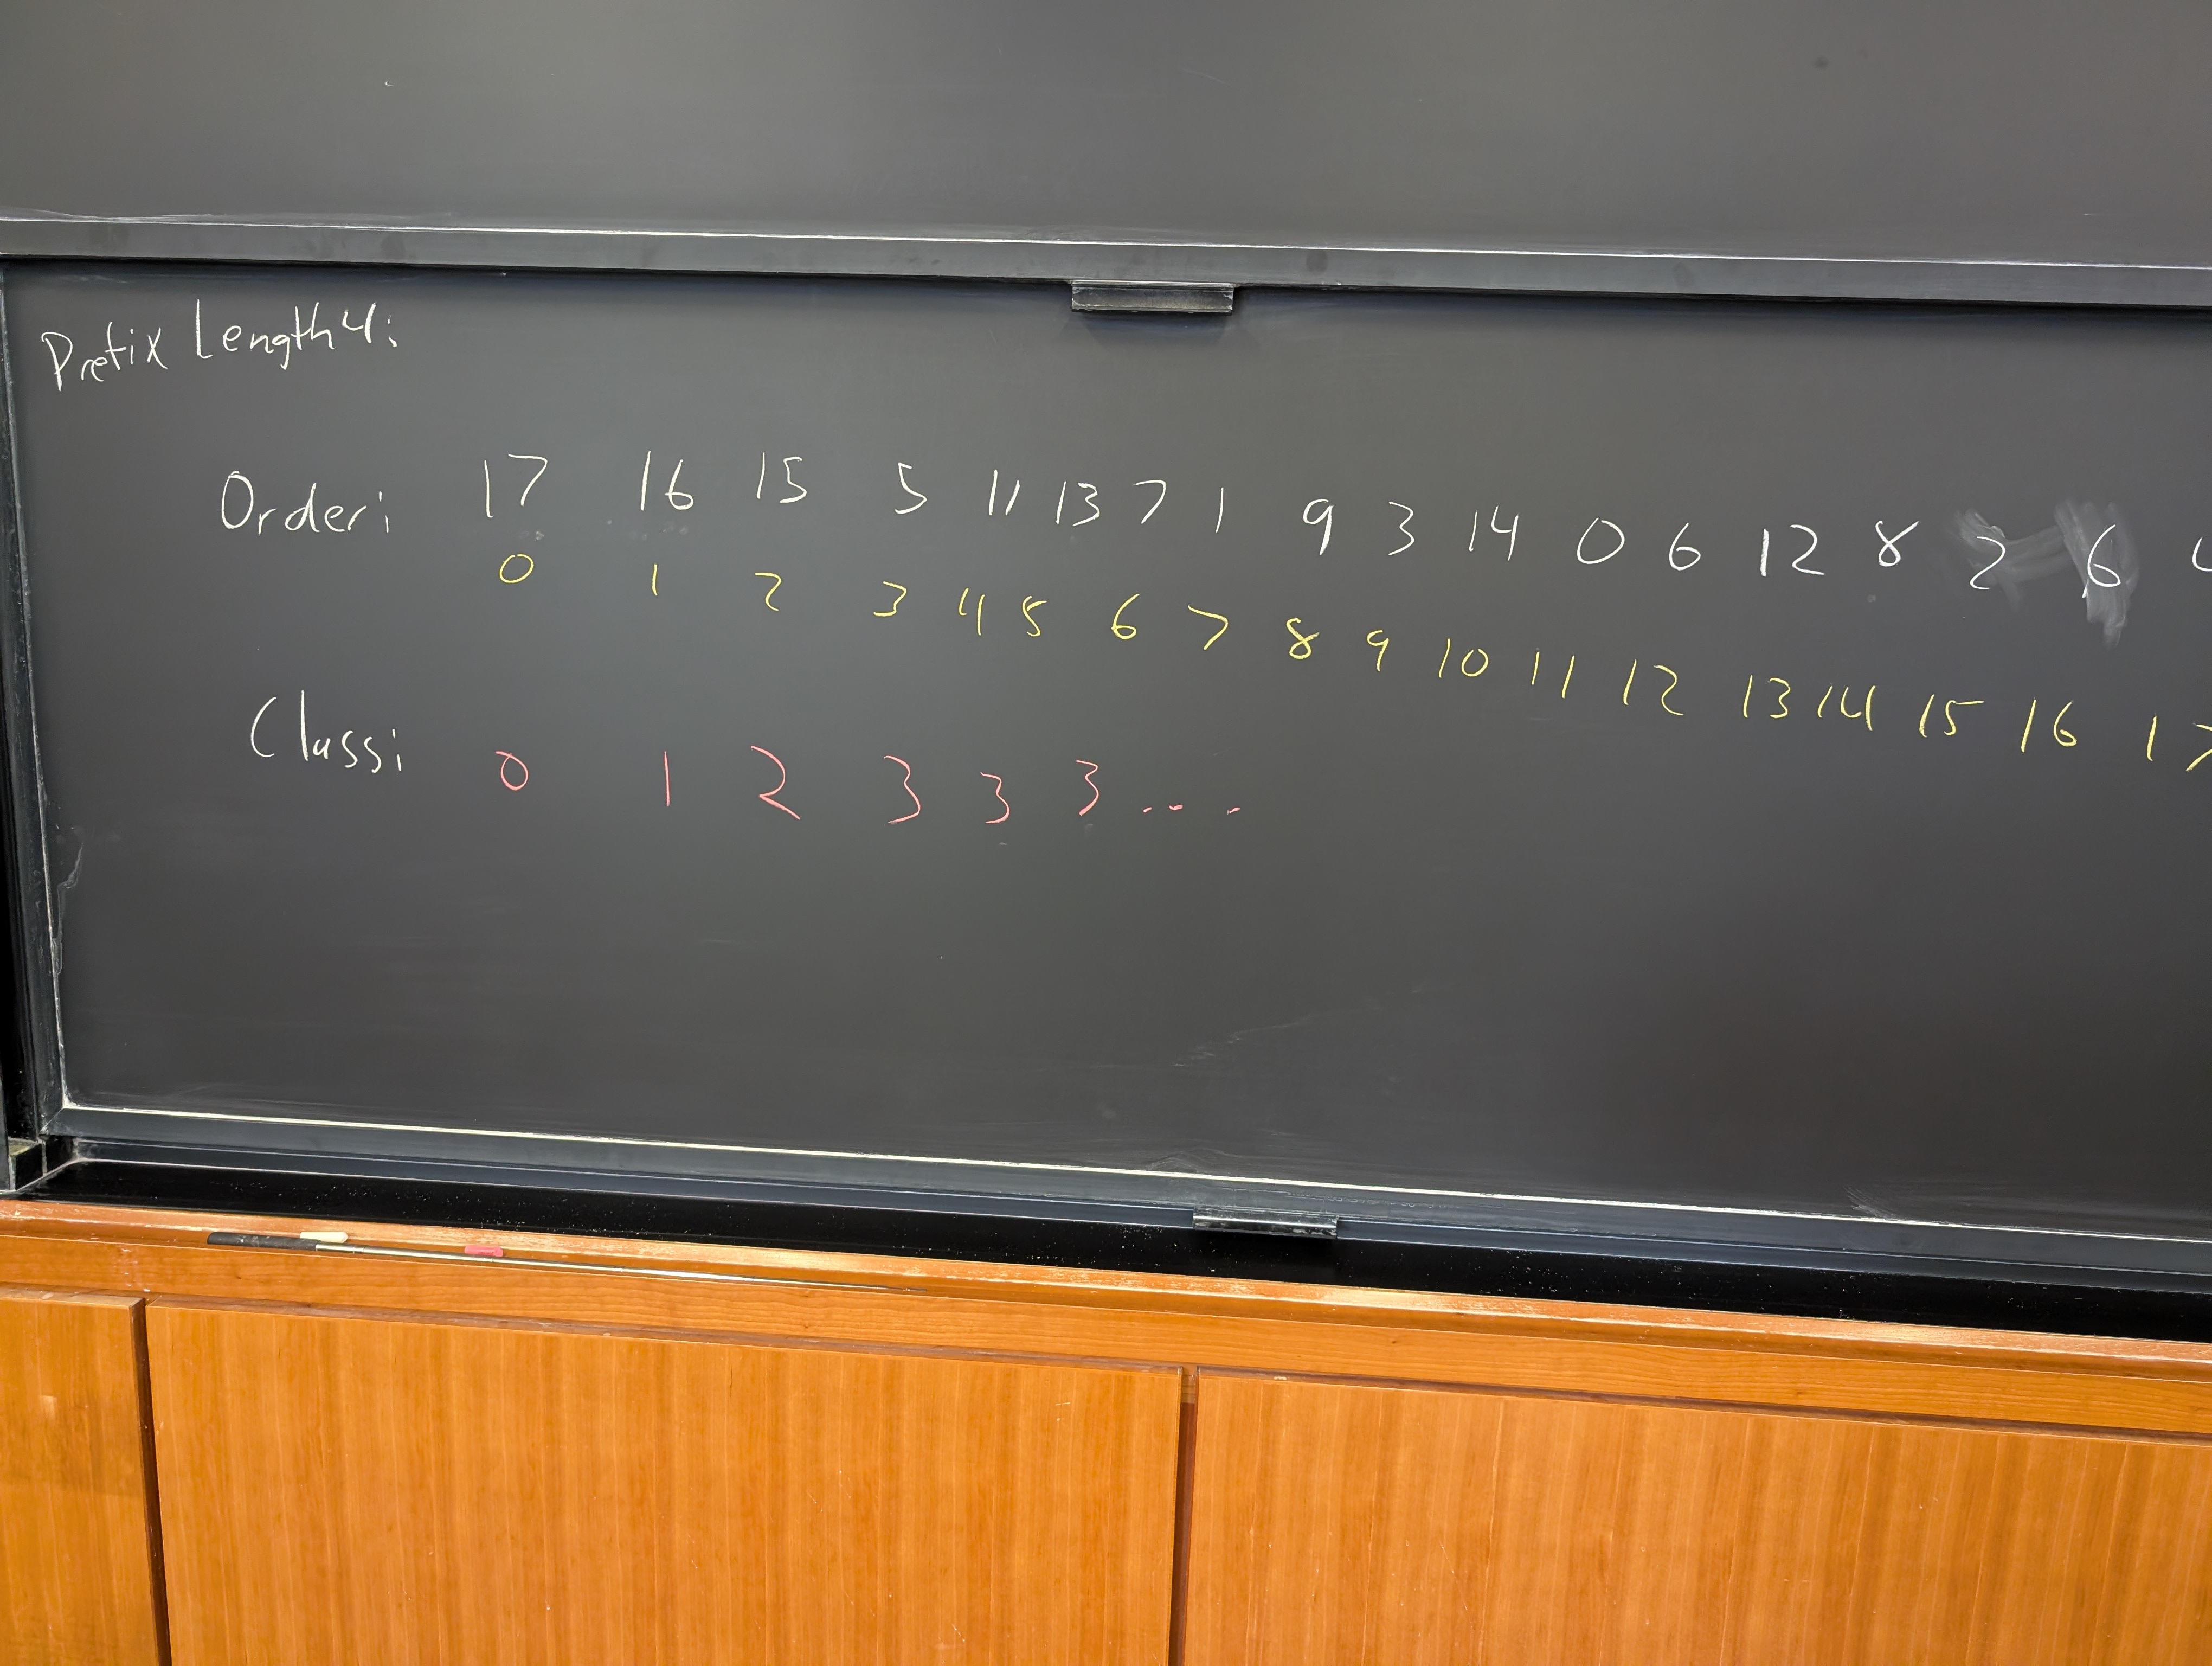 Prefix Length 4:
Order: 17 16 15 5 11 13 7 1 9 3 14 0 6 12 8 2 6
0 1 2 3 4 5 6 7 8 9 10 11 12 13 14 15 16 17
Class: 0 1 2 3 3 3 ...